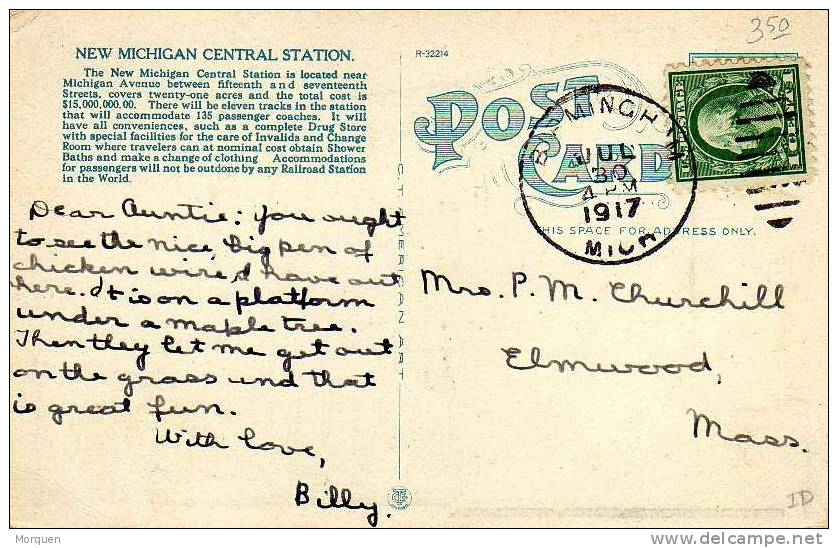 NEW MICHIGAN CENTRAL STATION.
The New Michigan Central Station is located near
Michigan Avenue between fifteenth and seventeenth
Streets, covers twenty-one acres and the total cost is
$15,000,000.00. There will be eleven tracks in the station
that will accommodate 135 passenger coaches. It will
have all conveniences, such as a complete Drug Store
with special facilities for the care of Invalids and Change
Room where travelers can at nominal cost obtain Shower
Baths and make a change of clothing Accommodations
for passengers will not be outdone by any Railroad Station
in the World.
Dear Auntie: you ought
to see the nice, big pen of
chicken wire, I have out
here. It is on a platform
under a maple tree.
Then they let me get out
on the grass and that
is great fun.
With love,
Billy.
C. T. AMERICAN ART
R-32214
350
POST
CARD
BIRMINGHAM
JUL
30
4 PM
1917
MICH
THIS SPACE FOR ADDRESS ONLY.
Mrs. P. M. Churchill
Elmwood,
Mass.
ID
Morquen
http://www.delcampe.net